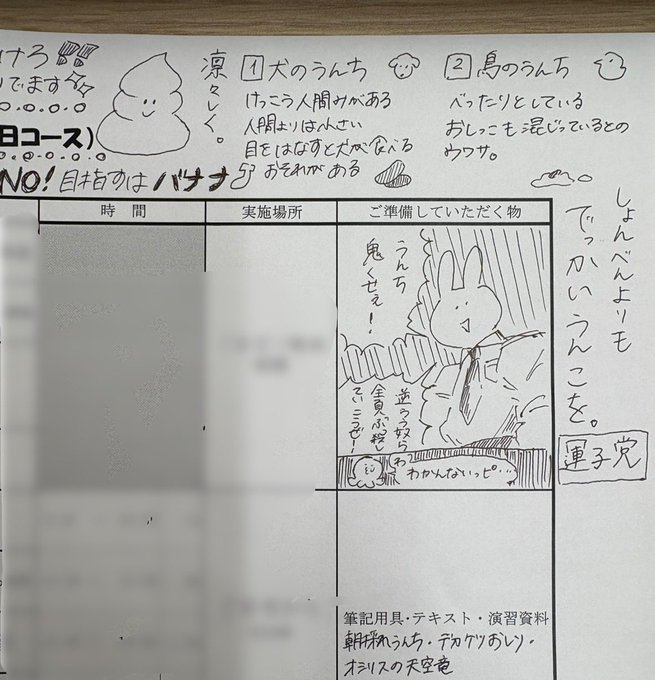 けろ
でます
凛々しく。
1 犬のうんち
けっこう人間みがある
人間よりは小さい
目をはなすと犬が食べる
おそれがある
2 鳥のうんち
べったりとしている
おしっこも混じっているとの
ウワサ。
日コース)
NO!目指すはバナナ
時間
実施場所
ご準備していただく物
うんち
鬼くせぇ!
逆らう奴ら
全員ぶっ殺し
ていこうぜー!
わかんないッピ…
しょんべんよりも
でっかいうんこを。
運子党
筆記用具・テキスト・演習資料
朝採れうんち・デカケツおしり・
オシリスの天空竜